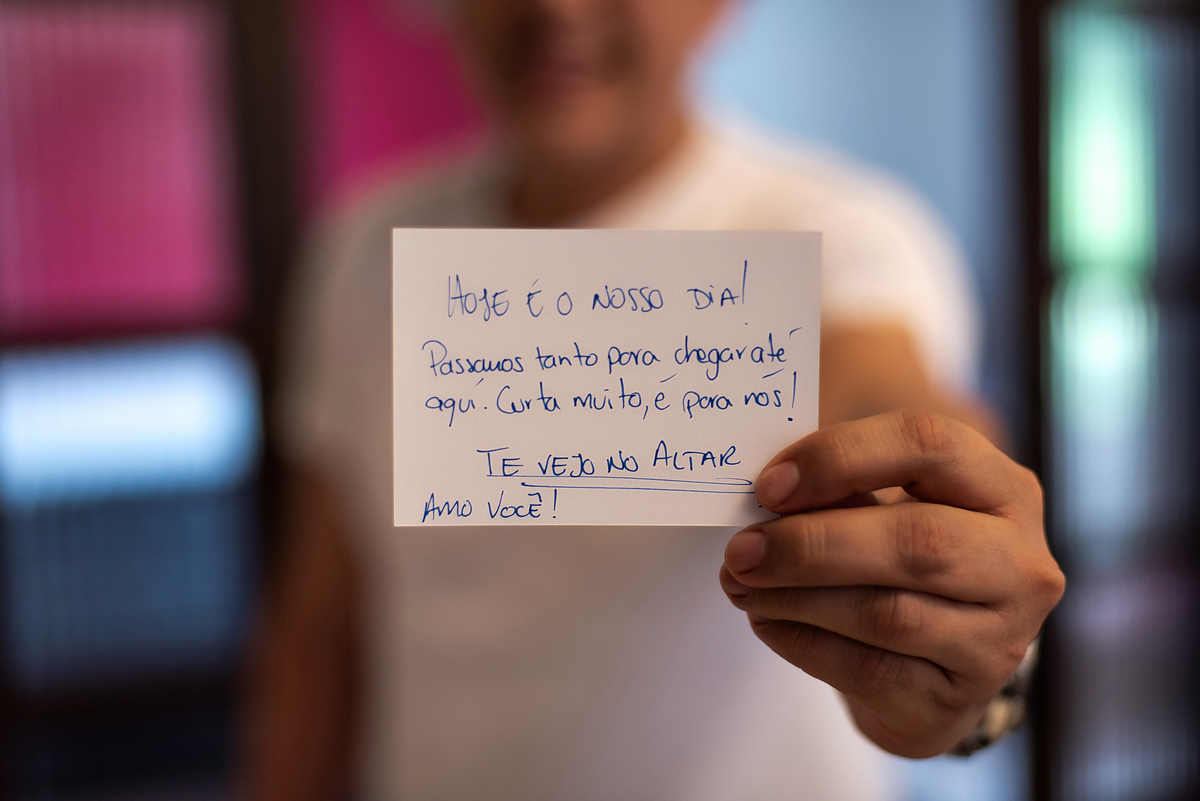 HOJE É O NOSSO DIA!
Passamos tanto para chegar até
aqui. Curta muito, é para nós!
TE VEJO NO ALTAR
AMO VOCÊ!